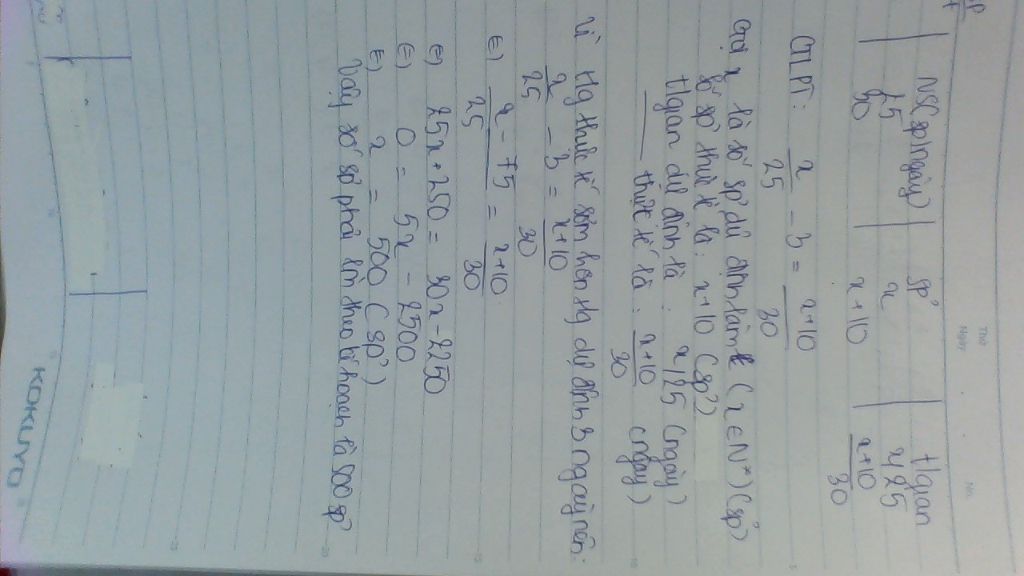 Thứ
Ngày
No.
NS(sp/ngày) | sp' | t/gian
25 | x | x/25
30 | x+10 | x+10/30
GTLPT: x/25 - 3 = x+10/30
Gọi x là số sp' dự định làm (x ∈ N*) (sp')
số sp' thực tế là: x+10 (sp')
t/gian dự định là: x/25 (ngày)
___ thực tế là: x+10/30 (ngày)
Vì tg thực tế sớm hơn tg dự định 3 ngày nên:
x/25 - 3 = x+10/30
(=) x-75/25 = x+10/30
(=) 25x+250 = 30x-2250
(=) 0 = 5x - 2500
(=) x = 500 (sp')
Vậy số sp' phải làm theo kế hoạch là 500 sp'
KOKUYO